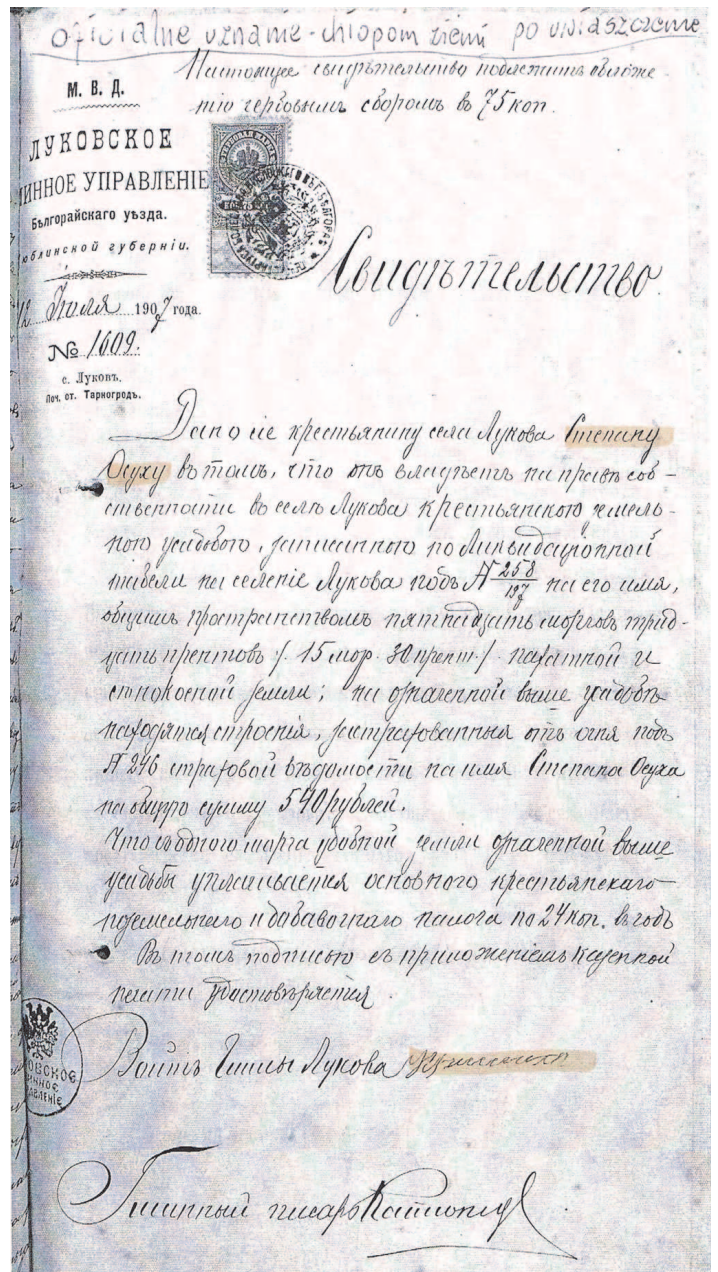 oficialne uznanie chłopom ziemi po uwłaszczenie
Настоящее свидѣтельство подлежитъ обложе
нію гербовымъ сборомъ въ 75 коп.
М. В. Д.
ЛУКОВСКОЕ
МИННОЕ УПРАВЛЕНІЕ
Бѣлгорайскаго уѣзда.
юблинской губерніи.
12 Іюля 1907 года.
№ 1609.
с. Луковъ.
Поч. ст. Тарногродъ.
Свидѣтельство.
Дано сіе крестьянину села Лукова Степану
Осуху въ томъ, что онъ владѣетъ на правѣ соб-
ственности въ селѣ Лукова крестьянскою земель-
ною усадьбою, записанною по Ликвидаціонной
табели на селеніе Лукова подъ № 258/197 на его имя,
общимъ пространствомъ пятнадцать морговъ трид-
цать прентовъ /. 15 мор. 30 прент. /. пахатной и
сѣнокосной земли; на означенной выше усадьбѣ
находятся строенія, застрахованныя отъ огня подъ
№ 246 страховой вѣдомости на имя Степана Осуха
на общую сумму 540 рублей.
Что съ одного морга удобной земли означенной выше
усадьбы уплачивается основнаго крестьянскаго
поземельнаго и добавочнаго налога по 24 коп. въ годъ
Въ томъ подписью съ приложеніемъ казенной
печати удостовѣряется.
Войтъ Гмины Лукова
Гминный писарь